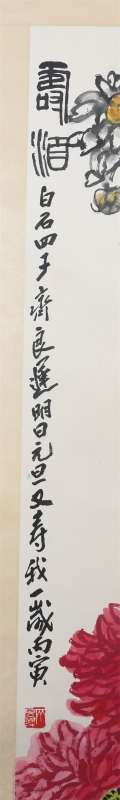 壽酒
白石四子齊良遲明日元旦又壽我一歲丙寅